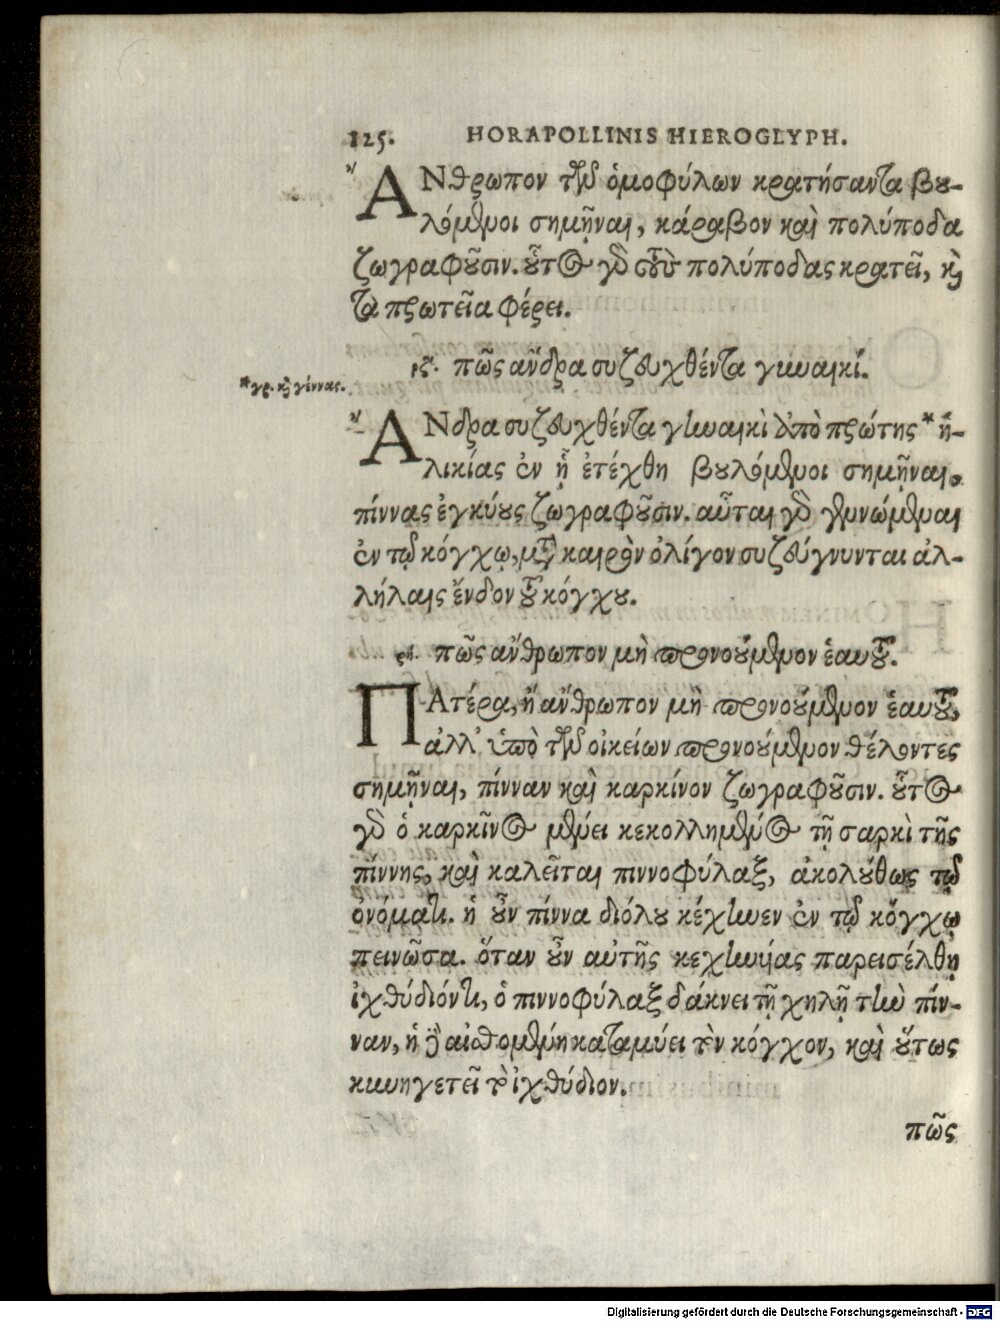 125. HORAPOLLINIS HIEROGLYPH.
ἌΝθρωπον τῶν ὁμοφύλων κρατήσαντα βου-
λόμενοι σημῆναι, κάραβον καὶ πολύποδα
ζωγραφοῦσιν. οὗτος γὰρ τοὺς πολύποδας κρατεῖ, καὶ
τὰ πρωτεῖα φέρει.
ρϛ. πῶς ἄνδρα συζευχθέντα γυναικί.
*γρ. καὶ γέννας.
ἌΝδρα συζευχθέντα γυναικὶ ἀπὸ πρώτης * ἡ-
λικίας ἐν ᾗ ἐτέχθη βουλόμενοι σημῆναι,
πίννας ἐγκύους ζωγραφοῦσιν. αὗται γὰρ γεννώμεναι
ἐν τῷ κόγχῳ, μετὰ καιρὸν ὀλίγον συζεύγνυνται ἀλ-
λήλαις ἔνδον τοῦ κόγχου.
ρζ. πῶς ἄνθρωπον μὴ προνοούμενον ἑαυτοῦ.
ΠΑτέρα, ἢ ἄνθρωπον μὴ προνοούμενον ἑαυτοῦ,
ἀλλ' ὑπὸ τῶν οἰκείων προνοούμενον θέλοντες
σημῆναι, πίνναν καὶ καρκίνον ζωγραφοῦσιν. οὗτος
γὰρ ὁ καρκῖνος μένει κεκολλημένος τῇ σαρκὶ τῆς
πίννης, καὶ καλεῖται πιννοφύλαξ, ἀκολούθως τῷ
ὀνόματι. ἡ οὖν πίννα διόλου κέχηνεν ἐν τῷ κόγχῳ
πεινῶσα. ὅταν οὖν αὐτῆς κεχηνυίας παρεισέλθῃ
ἰχθύδιόν τι, ὁ πιννοφύλαξ δάκνει τῇ χηλῇ τὴν πίν-
ναν, ἡ δὲ αἰσθομένη καταμύει τὸν κόγχον, καὶ οὕτως
κυνηγετεῖ τὸ ἰχθύδιον.
πῶς
Digitalisierung gefördert durch die Deutsche Forschungsgemeinschaft - DFG